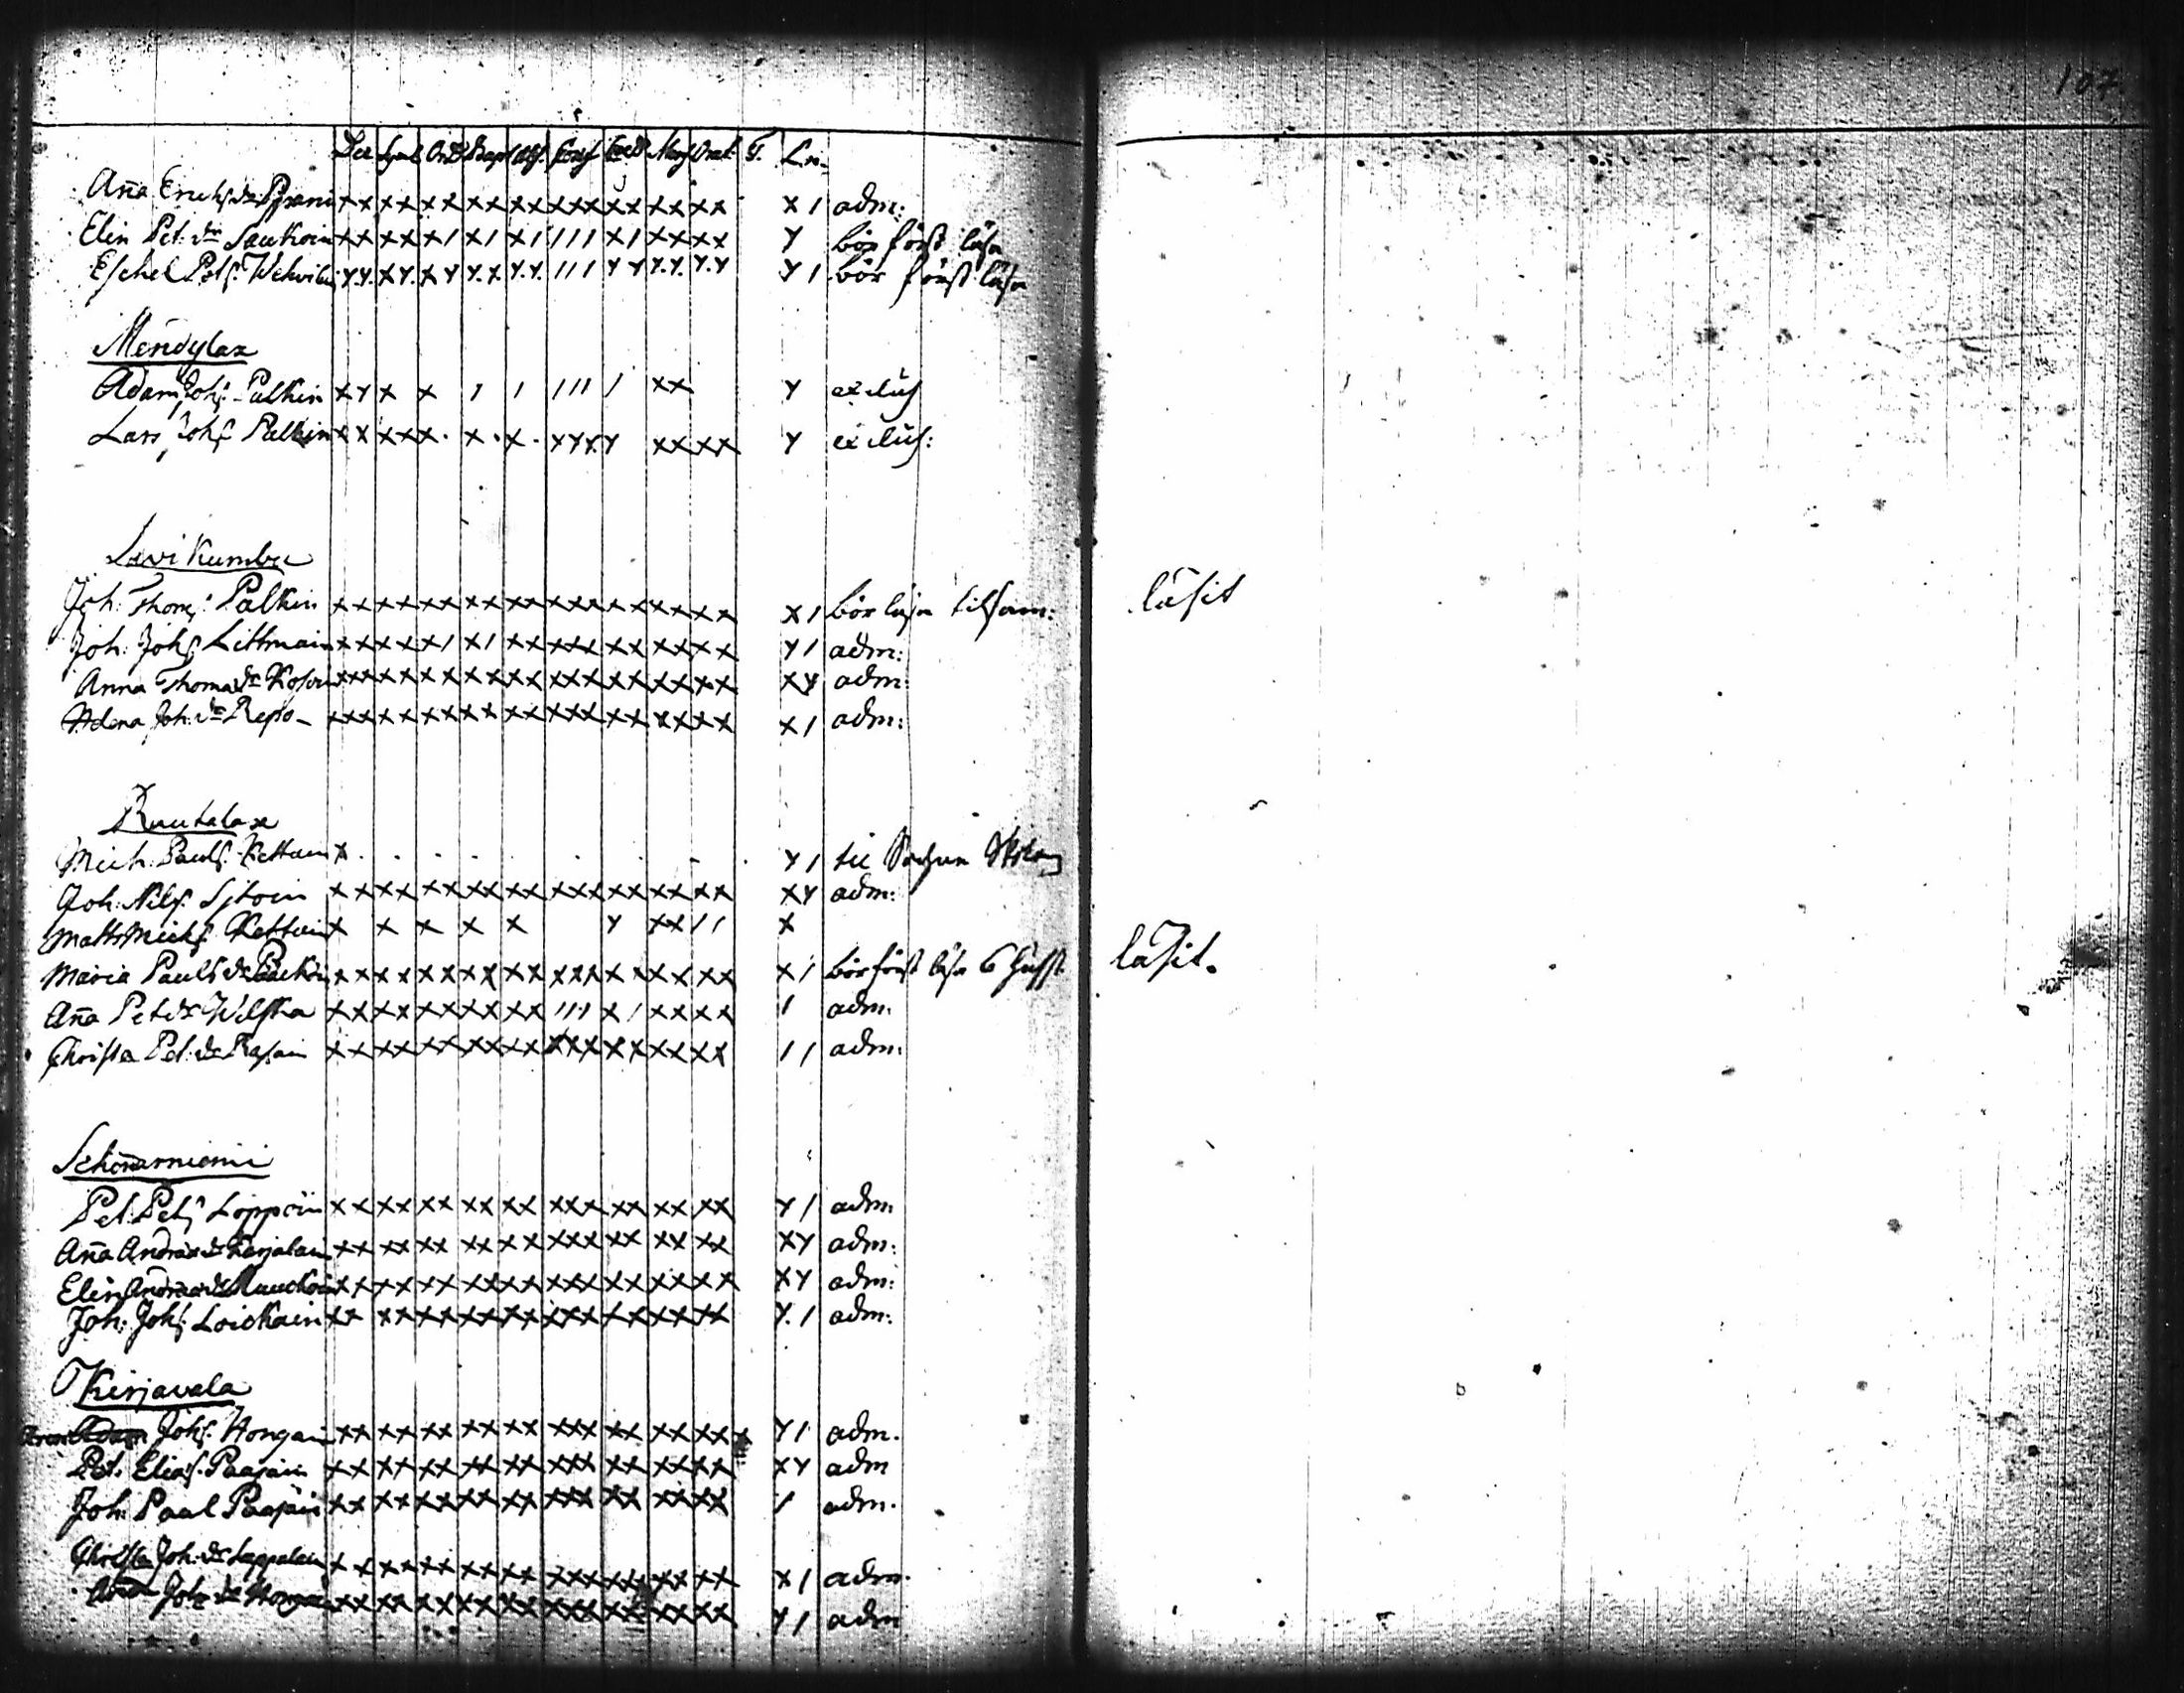 107
Dec Symb Or D Bapt Abs Conf Coen Mens Orat T. Ln
Aña Erichs dr Pyrani xx xx xx xx xx xxx xx xx xx x1 adm:
Elin Pet: dr Saukoin xx xx x1 x1 x1 111 x1 xx xx y bör först läsa
Eschel Pets: Wehvilain y.y. xy. xy y.x y.y. 111 yy y.y. y.y y1 bör först läsa
Mendylax
Adam Johs: Pulkin xy x x 1 1 111 1 xx y exclus
Lars Johs Pulkin xx xx x. x. x. xyx y xx xx y exclus:
Lavikumbu
Joh: Thoms: Pulkin xx xx xx xx xx xxx xx xx xx x1 bör läsa tilsam: läsit
Joh: Johs Littmain xx xx x1 x1 xx xxx xx xx xx y1 adm:
Anna Thomæ dr Kosoin xx xx xx xx xx xxx xx xx xx xy adm:
Helena Joh: dr Repo xx xx xx xx xx xxx xx xx xx x1 adm:
Ruutalax
Mich: Pauls: Kettuin x y1 til Sochne
Joh: Nils: xx xx xx xx xx xxx xx xx xx xy adm:
Matts Michs: Kettuin x x x x x y xx 11 x
Maria Pauls dr xx xx xx xx xx xxx xx xx xx x1 bör först läsa läsit.
Aña Pet dr Wilska xx xx xx xx xx 111 x1 xx xx 1 adm.
Christa Pet: dr Rasain xx xx xx xx xx xxx xx xx xx 11 adm:
Pet: Pets Loppöin xx xx xx xx xx xxx xx xx xx y1 adm
Aña Andræ dr Karjalain xx xx xx xx xx xxx xx xx xx xy adm:
Elin Andræ dr xx xx xx xx xx xxx xx xx xx xy adm:
Joh: Johs Loickain xx xx xx xx xx xxx xx xx xx y.1 adm:
Kirjavala
Adam Johs: Hongain xx xx xx xx xx xxx xx xx xx y1 adm.
Pet. Elias: Paajain xx xx xx xx xx xxx xx xx xx xy adm
Joh: Paul Paajain xx xx xx xx xx xxx xx xx xx 1 adm.
Christa Joh: dr Lappalain xx xx xx xx xx xxx xx xx xx x1 adm.
Aña Joh: dr Hongain xx xx xx xx xx xxx xx xx xx y1 adm